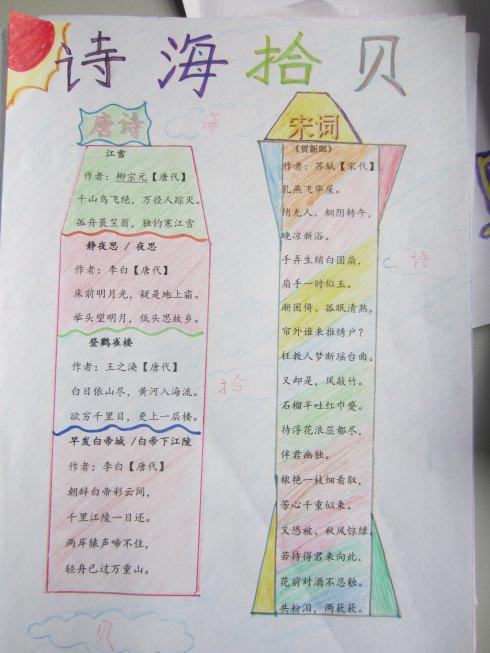 诗海拾贝
唐诗
江雪
作者：柳宗元【唐代】
千山鸟飞绝，万径人踪灭。
孤舟蓑笠翁，独钓寒江雪
静夜思 / 夜思
作者：李白【唐代】
床前明月光，疑是地上霜。
举头望明月，低头思故乡。
登鹳雀楼
作者：王之涣【唐代】
白日依山尽，黄河入海流。
欲穷千里目，更上一层楼。
早发白帝城 /白帝下江陵
作者：李白【唐代】
朝辞白帝彩云间，
千里江陵一日还。
两岸猿声啼不住，
轻舟已过万重山。
海
拾
贝
宋词
《贺新郎》
作者：苏轼【宋代】
乳燕飞华屋。
悄无人、桐阴转午，
晚凉新浴。
手弄生绡白团扇，
扇手一时似玉。
渐困倚、孤眠清熟。
帘外谁来推绣户？
枉教人梦断瑶台曲。
又却是，风敲竹。
石榴半吐红巾蹙。
待浮花浪蕊都尽，
伴君幽独。
秾艳一枝细看取，
芳心千重似束。
又恐被、秋风惊绿。
若待得君来向此，
花前对酒不忍触。
共粉泪，两簌簌。
诗